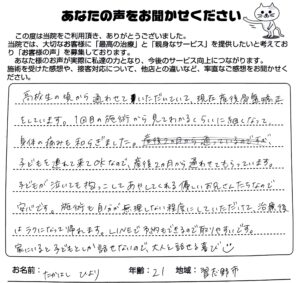 あなたの声をお聞かせください
この度は当院をご利用頂き、ありがとうございました。
当院では、大切なお客様に「最高の治療」と「親身なサービス」を提供したいと考えており「お客様の声」を募集しております。
あなた様のお声が実際に私達の力となり、今後のサービス向上につながります。
施術を受けた感想や、接客対応について、他店との違いなど、率直なご感想をお聞かせください。
高校生の頃から通わせていただいていて、現在産後骨盤矯正
をしています。1回目の施術から見てわかるくらいに細くなって
身体の痛みも和らぎました。
子どもを連れて来てOKなので、産後2か月から通わせてもらっています。
子どもが泣いても抱っこしてあやしてくれる優しいお兄さんたちなので
安心です。施術も自分が無理しない程度にしていただけて、治療後
はラクになって帰れます。LINEで予約もできるので取りやすいです。
家にいると子どもとしか話せないので、大人と話せる喜び
お名前：たかはし ひより 年齢：21 地域：習志野市